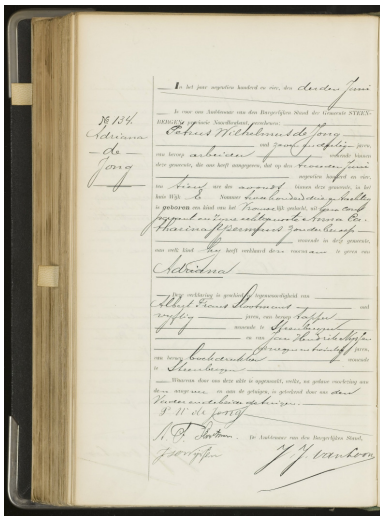 N 134.
Adriana
de
Jong
In het jaar negentien honderd en vier, den derden Juni
is voor ons Ambtenaar van den Burgerlijken Stand der Gemeente STEEN-
BERGEN, provincie Noordbrabant, verschenen:
Petrus Wilhelmus de Jong
oud jaren,
van beroep arbeider wonende binnen
deze gemeente, die ons heeft aangegeven, dat op den tweeden Juni
negentien honderd en vier,
des avonds binnen deze gemeente, in het
huis Wijk E Nummer tachtig
is geboren een kind van het vrouwelijk geslacht, uit
zijne echtgenoote Anna Ca-
tharina zonder beroep
wonende in deze gemeente,
aan welk kind hij heeft verklaard den voornaam te geven van
Adriana
Deze verklaring is geschied in tegenwoordigheid van
Albert Frans oud
vijftig jaren, van beroep
wonende te Steenbergen
en van Jan Hendrik
jaren,
van beroep wonende
te Steenbergen
Waarvan door ons deze akte is opgemaakt, welke, na gedane voorlezing aan
den aangever en aan de getuigen, is geteekend door ons den
Vader en de beide getuigen.
P W de Jong
De Ambtenaar van den Burgerlijken Stand,
J. J. van Loon